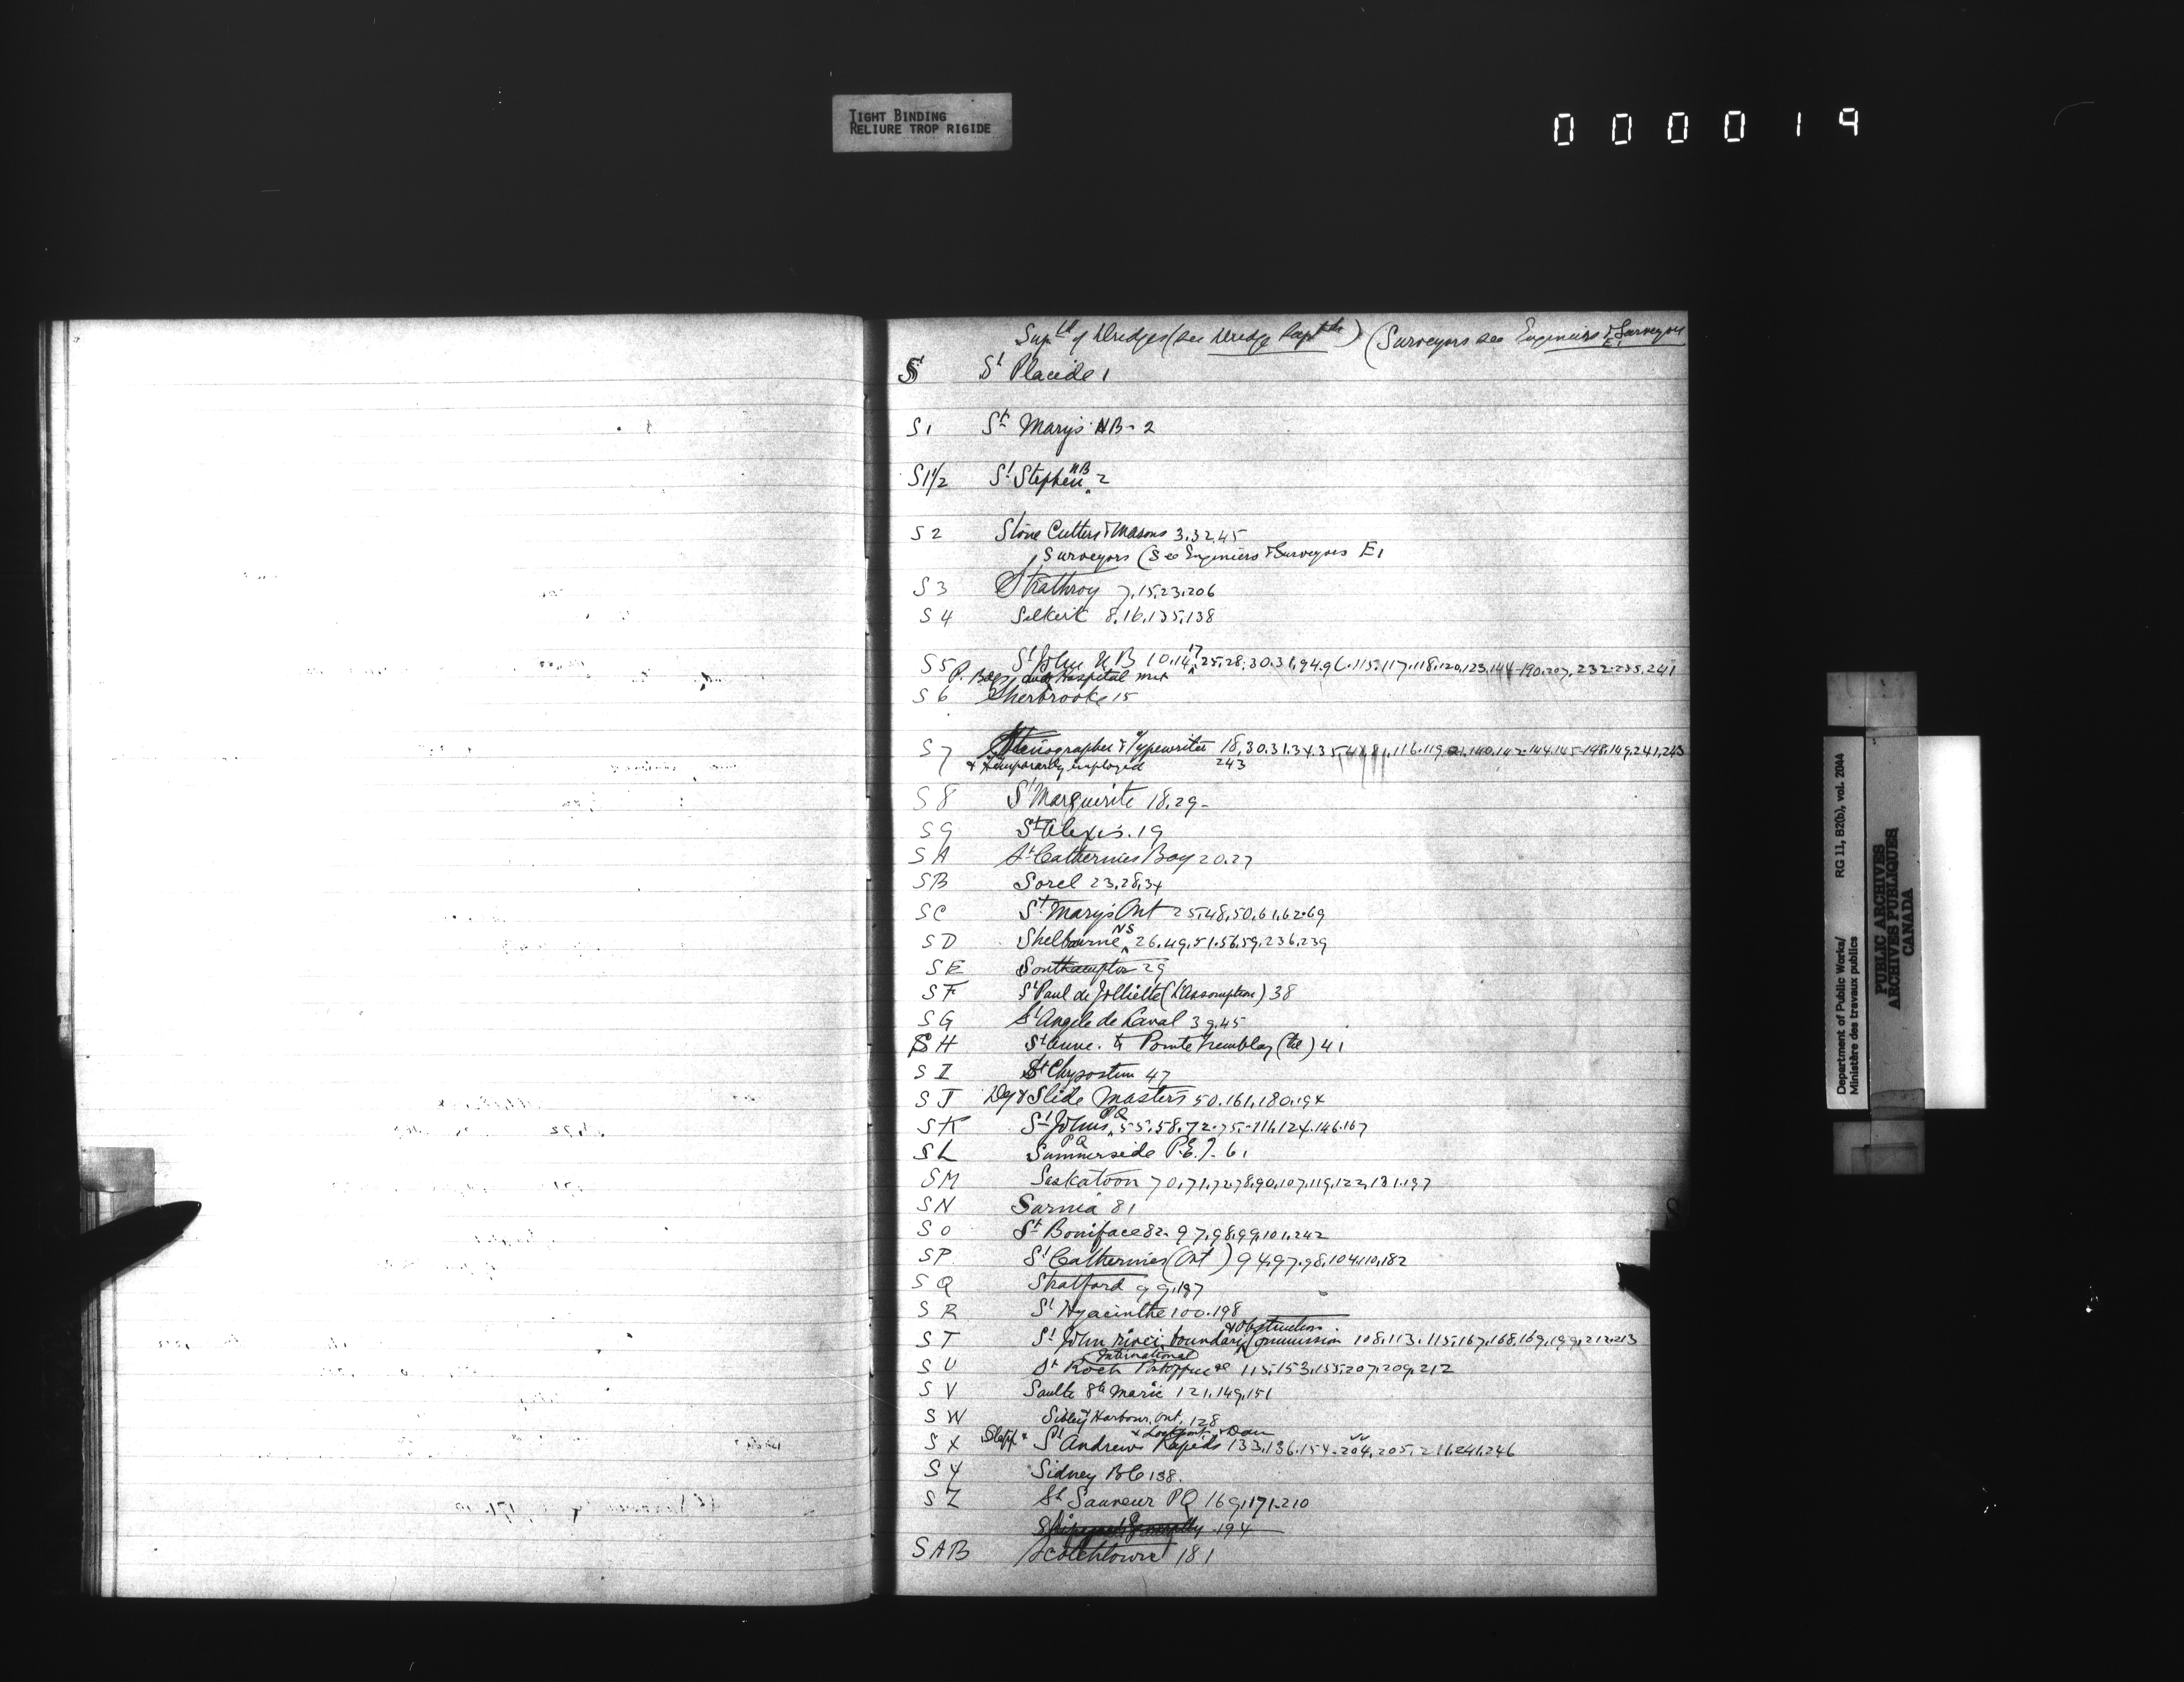 TIGHT BINDING
RELIURE TROP RIGIDE
000019
Supt of Dredges (see Dredge Capts) (Surveyors see Engineers & Surveyors E1
S St Placide 1
S1 St Marys NB - 2
S1 1/2 St Stephen NB 2
S2 Stone Cutters & Masons 3.32.45
Surveyors (See Engineers & Surveyors E1
S3 Strathroy 7.15.23.206
S4 Selkirk 8.16.135.138
S5 St John N B 10.14.17.25.28.30.31.94.96.115.117.118.120.123.144-190.207.232-235.241
P. Bdgs, and Hospital
S6 Sherbrooke 15
S7 Stenographer & Typewriter 18.30.31.34.35
& temporarily employed 243
S8 St Marguerite 18.29-
S9 St Alexis. 19
SA St Catherines Bay 20.27
SB Sorel 23.28.34
SC St Marys Ont 25.48.50.61.62.69
SD Shelbourne NS 26.49.51.56.59.236.239
SE Southampton 29
SF St Paul de Jolliette (L'Assomption) 38
SG St Angele de Laval 39.45
SH St Anne. to Pointe Tremblay (tel) 41
SI St Chrysostem 47
SJ Dy & Slide Masters 50.161.180.194
SK St Johns PQ 55.58.72.75.-116.124.146.167
SL Summerside P.E.I. 61
SM Saskatoon 70.71.72.78.90.107.119.122.131.197
SN Sarnia 81
SO St Boniface 82. 97.98.99.101.242
SP St Catherines (Ont) 94.97.98.104.110.182
SQ Stratford 99.197
SR St Hyacinthe 100.198
ST St John River boundary & Obstruction Commission 108.113.115.167.168.169.199.212.213
International
SU St Roch 115.153.155.207.209.212
SV Saulte Ste Marie 121.149.151
SW Sibley Harbour, Ont. 128
SX Staff & St Andrews Rapids & Lockport & Dam 133.136.154-204.205.211.241.246
SY Sidney BC 138.
SZ St Sauveur PQ 169.171.210
194
SAB Scotchtown 181
Department of Public Works/
Ministère des travaux publics
RG 11, B2(b), vol. 2044
PUBLIC ARCHIVES
ARCHIVES PUBLIQUES
CANADA